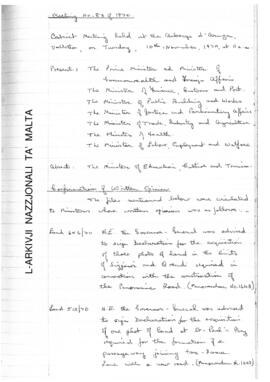 Meeting No. 83 of 1970.
Cabinet Meeting held at the Auberge d'Aragon,
Valletta, on Tuesday, 10th November, 1970, at
Present: The Prime Minister and Minister of
Commonwealth and Foreign Affairs
The Minister of Finance, Customs and Port.
The Minister of Public Building and Works
The Minister of Justice and Parliamentary Affairs
The Minister of Trade, Industry and Agriculture
The Minister of Health.
The Minister of Labour, Employment and Welfare
Absent: The Minister of Education, Culture and Tourism.
Confirmation of Written Opinions
The files mentioned below were circulated
to Ministers whose written opinion was as follows:-
Land 506/70 H.E. the Governor-General was advised
to sign Declaration for the acquisition
of three plots of land in the limits
of Siggiewi and Qrendi required in
connection with the construction of
the Panoramic Road. (Memorandum No.
Land 512/70 H.E. the Governor-General was advised
to sign Declaration for the acquisition
of one plot of land at St. Paul's Bay
required for the formation of a
passageway joining
Lane with a new road. (Memorandum No.
L-ARKIVJI NAZZJONALI TA' MALTA